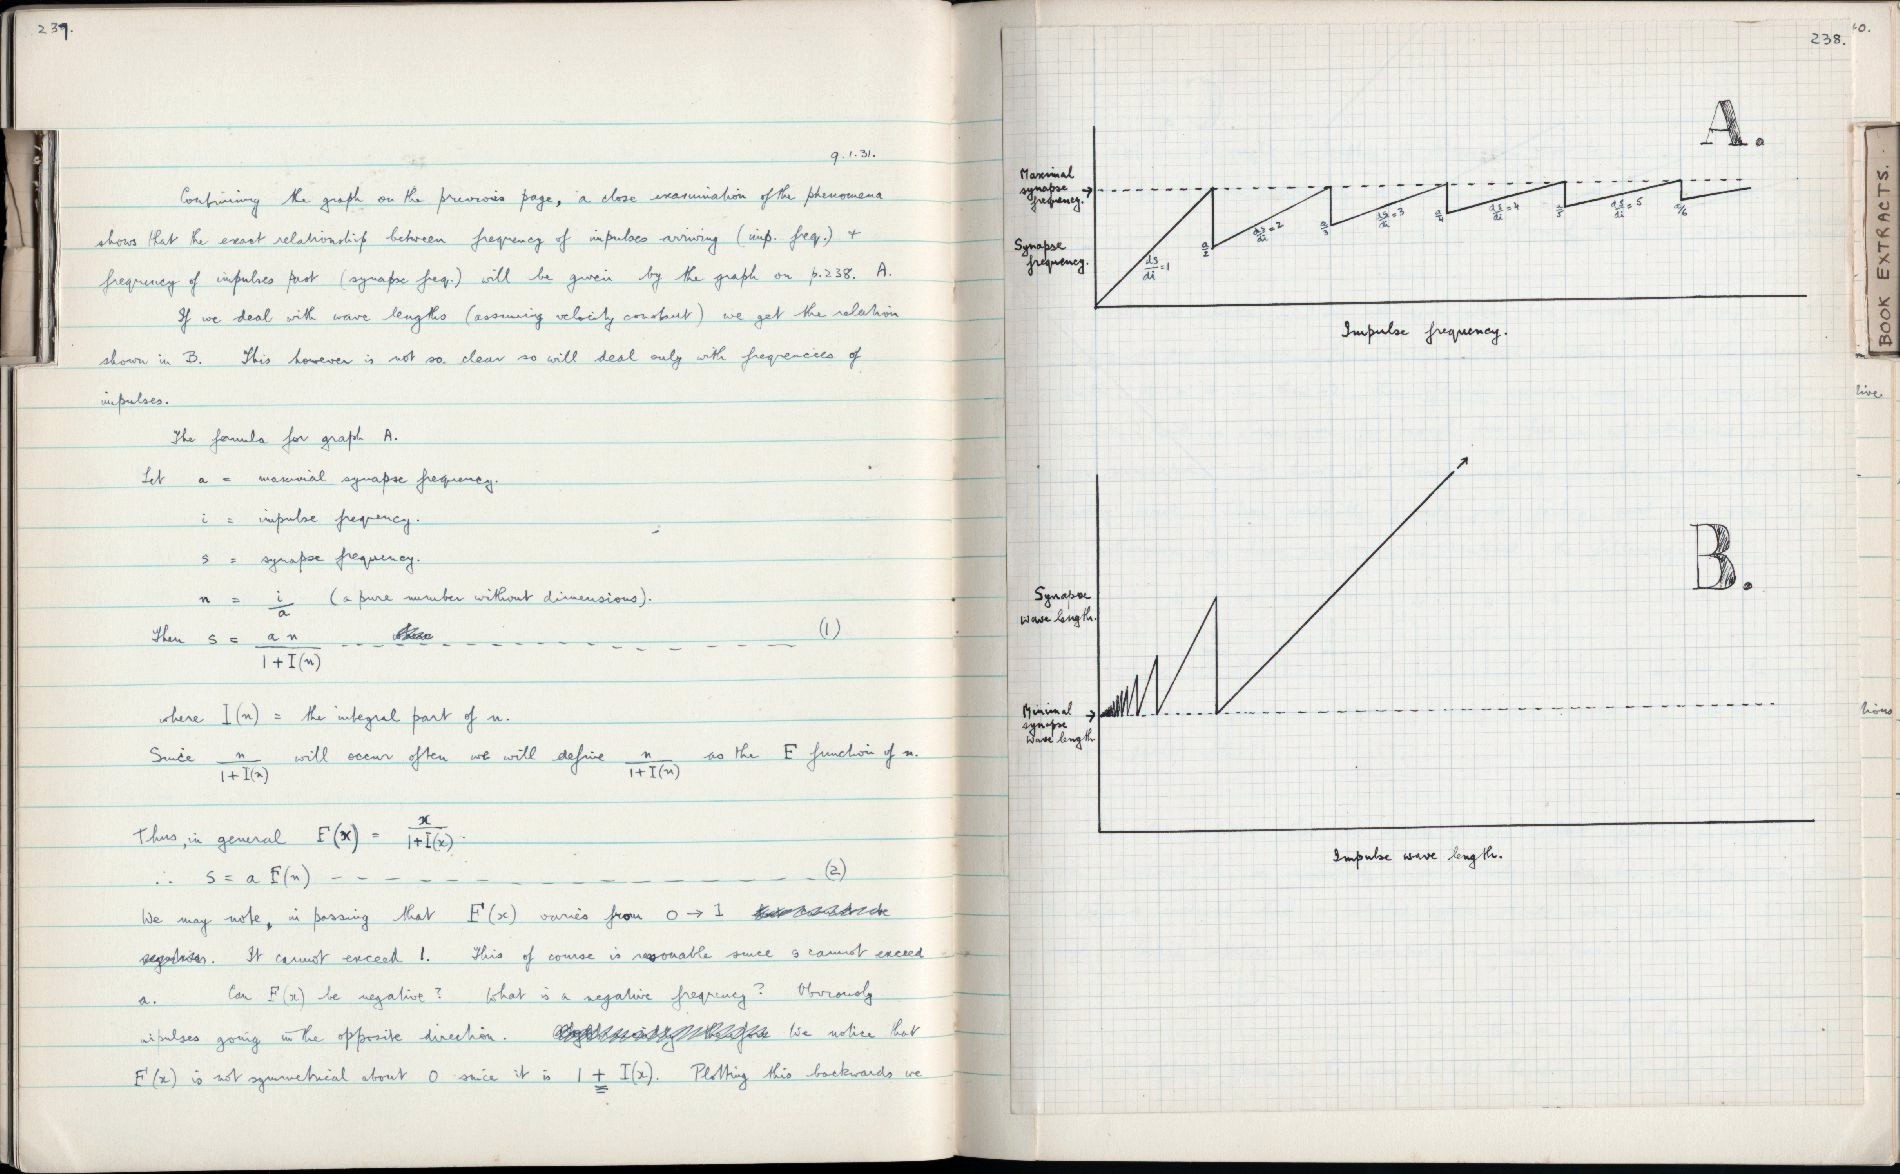 239.
9.1.31.
Continuing the graph on the previous page, a close examination of the phenomena
shows that the exact relationship between frequency of impulses arriving (imp. freq.) +
frequency of impulses past (synapse freq.) will be given by the graph on p.238. A.
If we deal with wave lengths (assuming velocity constant) we get the relation
shown in B. This however is not so clear so will deal only with frequencies of
impulses.
The formula for graph A.
Let a = maximal synapse frequency.
i = impulse frequency.
s = synapse frequency.
n = i/a (a pure number without dimensions).
Then s = an/(1+I(n)) (1)
where I(n) = the integral part of n.
Since n/(1+I(n)) will occur often we will define n/(1+I(n)) as the F function of n.
Thus, in general F(x) = x/(1+I(x)).
∴ s = a F(n) (2)
We may note, in passing that F(x) varies from 0 → 1
It cannot exceed 1. This of course is reasonable since s cannot exceed
a. Can F(x) be negative? What is a negative frequency? Obviously
impulses going in the opposite direction. We notice that
F(x) is not symmetrical about 0 since it is 1 + I(x). Plotting this backwards we
238.
A.
Maximal
synapse
frequency.
Synapse
frequency.
ds/di=1
a/2
ds/di=2
a/3
ds/di=3
a/4
ds/di=4
a/5
ds/di=5
a/6
Impulse frequency.
B.
Synapse
wave length.
Minimal
synapse
wave length
Impulse wave length.
BOOK EXTRACTS.